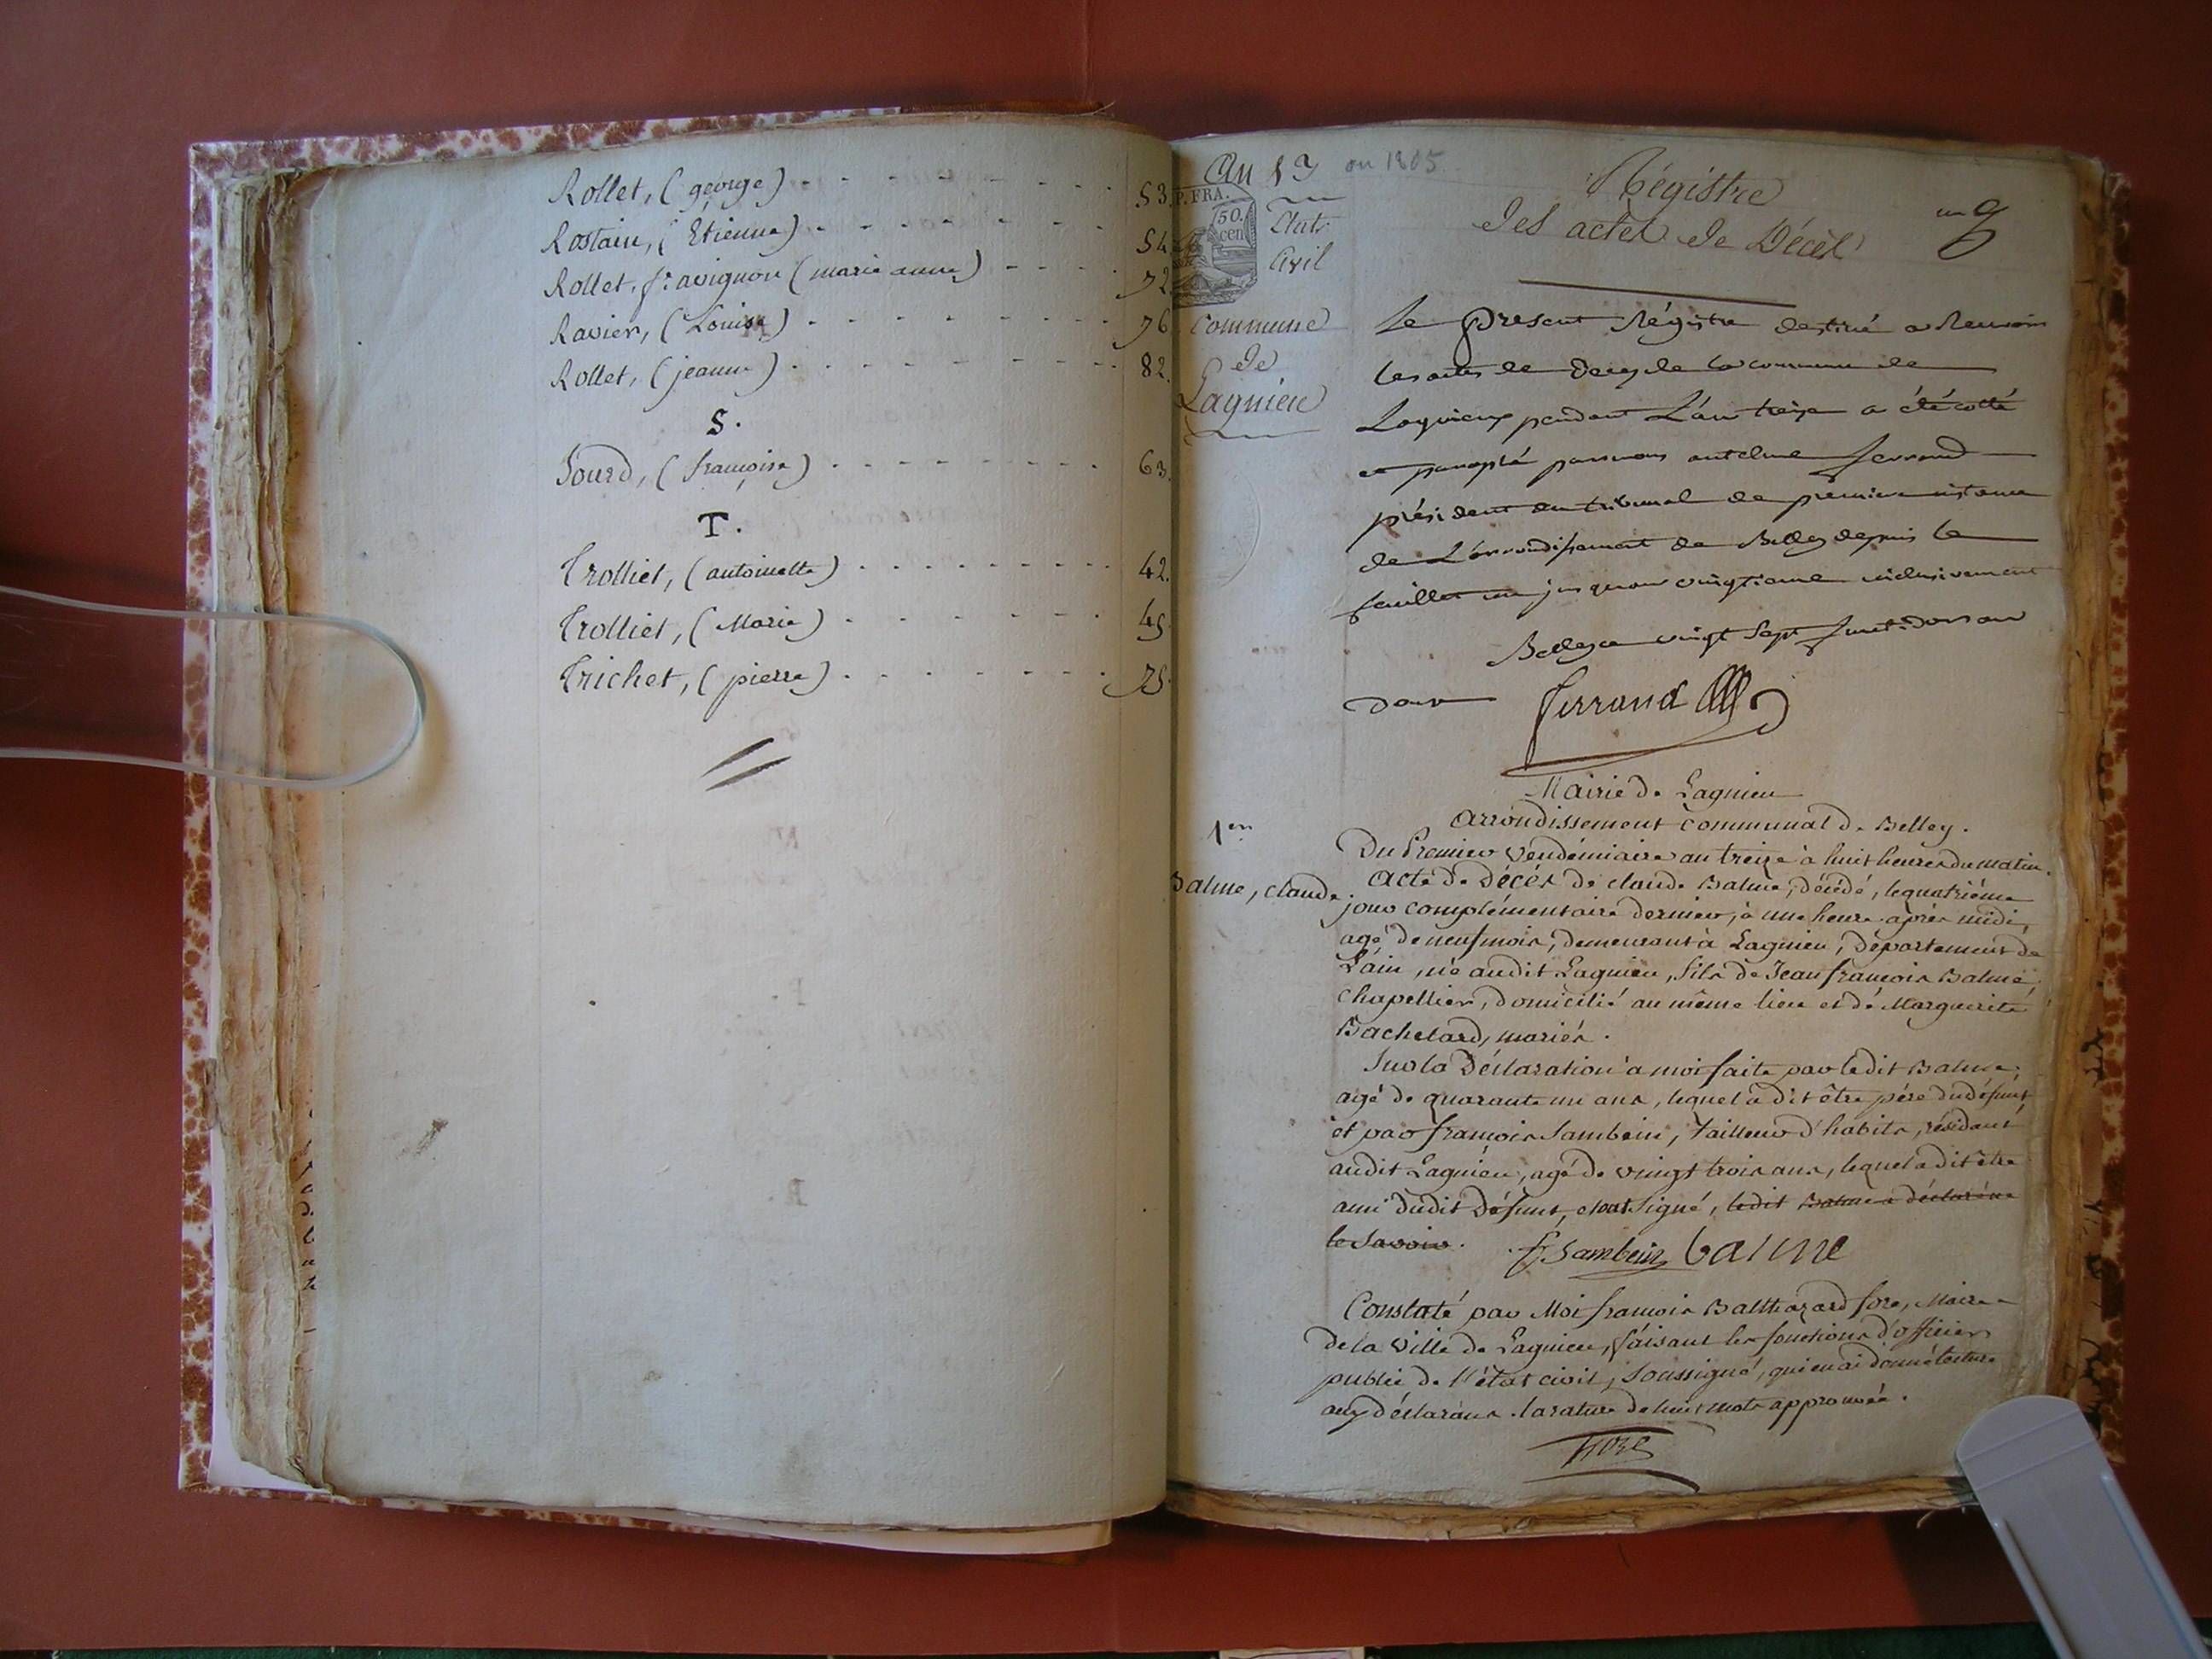 Rollet, (george) - - - - - - - - 53.
Rostain, (Étienne) - - - - - - - 54
Rollet, f.e avignon (marie anne) - - - - 72
Ravier, (Louise) - - - - - - - - 76
Rollet, (jeanne) - - - - - - - - 82.
S.
Sourd, (françoise) - - - - - - - - 63.
T.
Trolliet, (antoinette) - - - - - - - - 42.
Trolliet, (Marie) - - - - - - - 45.
Trichet, (pierre) - - - - - - - 75.
An 13 ou 1805
P. FRA.
50.
cen
État
Civil
Commune
de
Lagnieu
Régistre
des actes de Décès
un
Le present Régistre destiné a Recevoir
les actes de deces de la commune de
Lagnieux pendant L'an treize a été cotté
et paraphé par nous antelme ferrand
président du tribunal de premiere instance
de L'arrondissement de Belley depuis le
feuillet un jusqu'au vingtieme inclusivement
Belley ce vingt sept fructidor an
douze ferrand
Mairie de Lagnieu
arrondissement Communal de Belley.
1er
Balme, claude.
Du Premier Vendémiaire an treize à huit heures du matin.
Acte de Décès de claude Balme, décédé, le quatriéme
jour complémentaire dernier, à une heure après midi,
agé de neuf mois, demeurant à Lagnieu, département de
L'ain, né audit Lagnieu, fils de Jean françois Balme
Chapellier, domicilié au même lieu et de Marguerite
Bachelard, mariés.
Sur la Déclaration à moi faite par ledit Balme,
agé de quarante un ans, lequel a dit être père du défunt
et par françois Sambein, tailleur d'habits, résidant
audit Lagnieu, agé de vingt trois ans, lequel a dit être
ami dudit Défunt, et ont Signé, ledit Balme a déclaré ne
le Savoir. f Sambein balme
Constaté par Moi françois Balthazard fore, Maire
de la Ville de Lagnieu, faisant les fonctions d'officier
public de l'état civil, Soussigné, qui en ai donné lecture
aux déclarans. la rature de huit mots approuvée.
fore